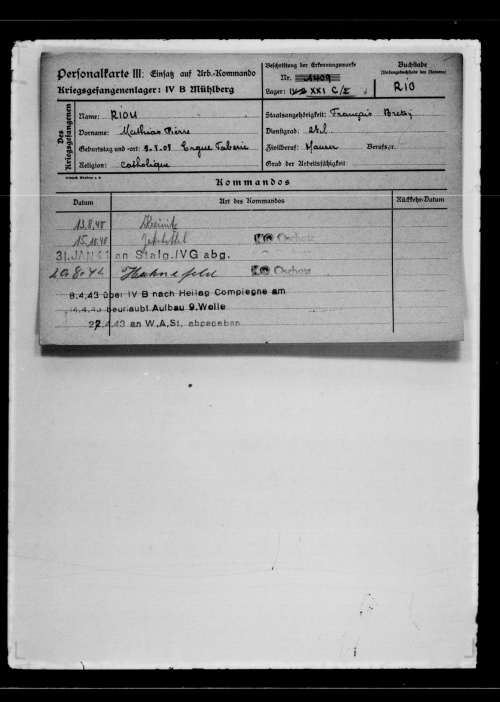 Personalkarte III: Einsatz auf Arb.-Kommando
Kriegsgefangenenlager: IV B Mühlberg
Beschriftung der Erkennungsmarke
Nr. 1409
Lager: XXI C/Z
Buchstabe
(Anfangsbuchstabe des Namens)
RIO
Des Kriegsgefangenen
Name: RIOU
Vorname: Mathias Pierre
Geburtstag und -ort: Ergué Gaberic
Religion: catholique
Staatsangehörigkeit: Français
Dienstgrad: 2kl
Zivilberuf: Maurer Berufsgr.
Grad der Arbeitsfähigkeit:
Kommandos
Datum Art des Kommandos Rückkehr-Datum
13.8.40
15.10.40 Oschatz
31.JAN 41 an Stalg.IVG abg.
Oschatz
8.4.43 über IV B nach Heilag Compiegne am
14.4.43 beurlaubt Aufbau 9.Welle
22.4.43 an W.A.St. abgegeben